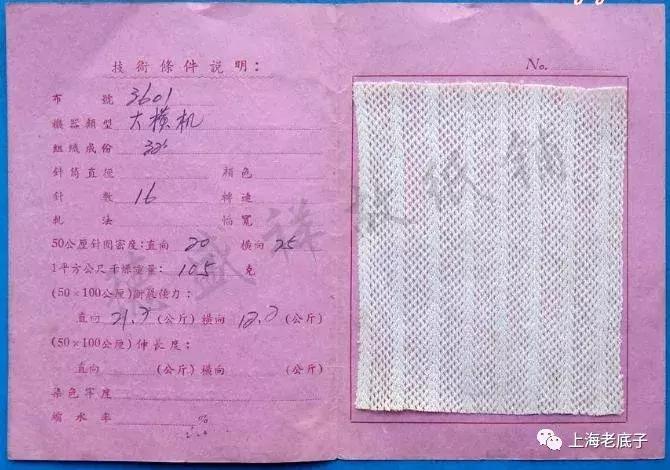 技術條件説明:
布號 3601
機器類型 大横机
組織成份
針筒直徑 顏色
針數 16 轉速
軋法 幅寬
50公厘針圈密度:直向 20 橫向 25
1平方公尺干燥重量: 105 克
(50×100公厘)断裂强力:
直向 21.7 (公斤) 橫向 (公斤)
(50×100公厘)伸長度:
直向 (公斤) 橫向 (公斤)
染色牢度
縮水率 %
No.
上海老底子